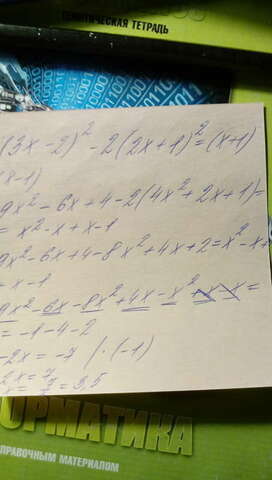 ТЕМАТИЧЕСКАЯ ТЕТРАДЬ
(3x-2)² - 2(2x+1)² = (x+1)
(x-1)
9x² - 6x + 4 - 2(4x² + 2x + 1) =
= x² - x + x - 1
9x² - 6x + 4 - 8x² + 4x + 2 = x² - x +
+ x - 1
9x² - 6x - 8x² + 4x - x² + x - x =
= -1 - 4 - 2
-2x = -7 | · (-1)
2x = 7
= 3,5
ОРМАТИКА
ПРАВОЧНЫМ МАТЕРИАЛОМ